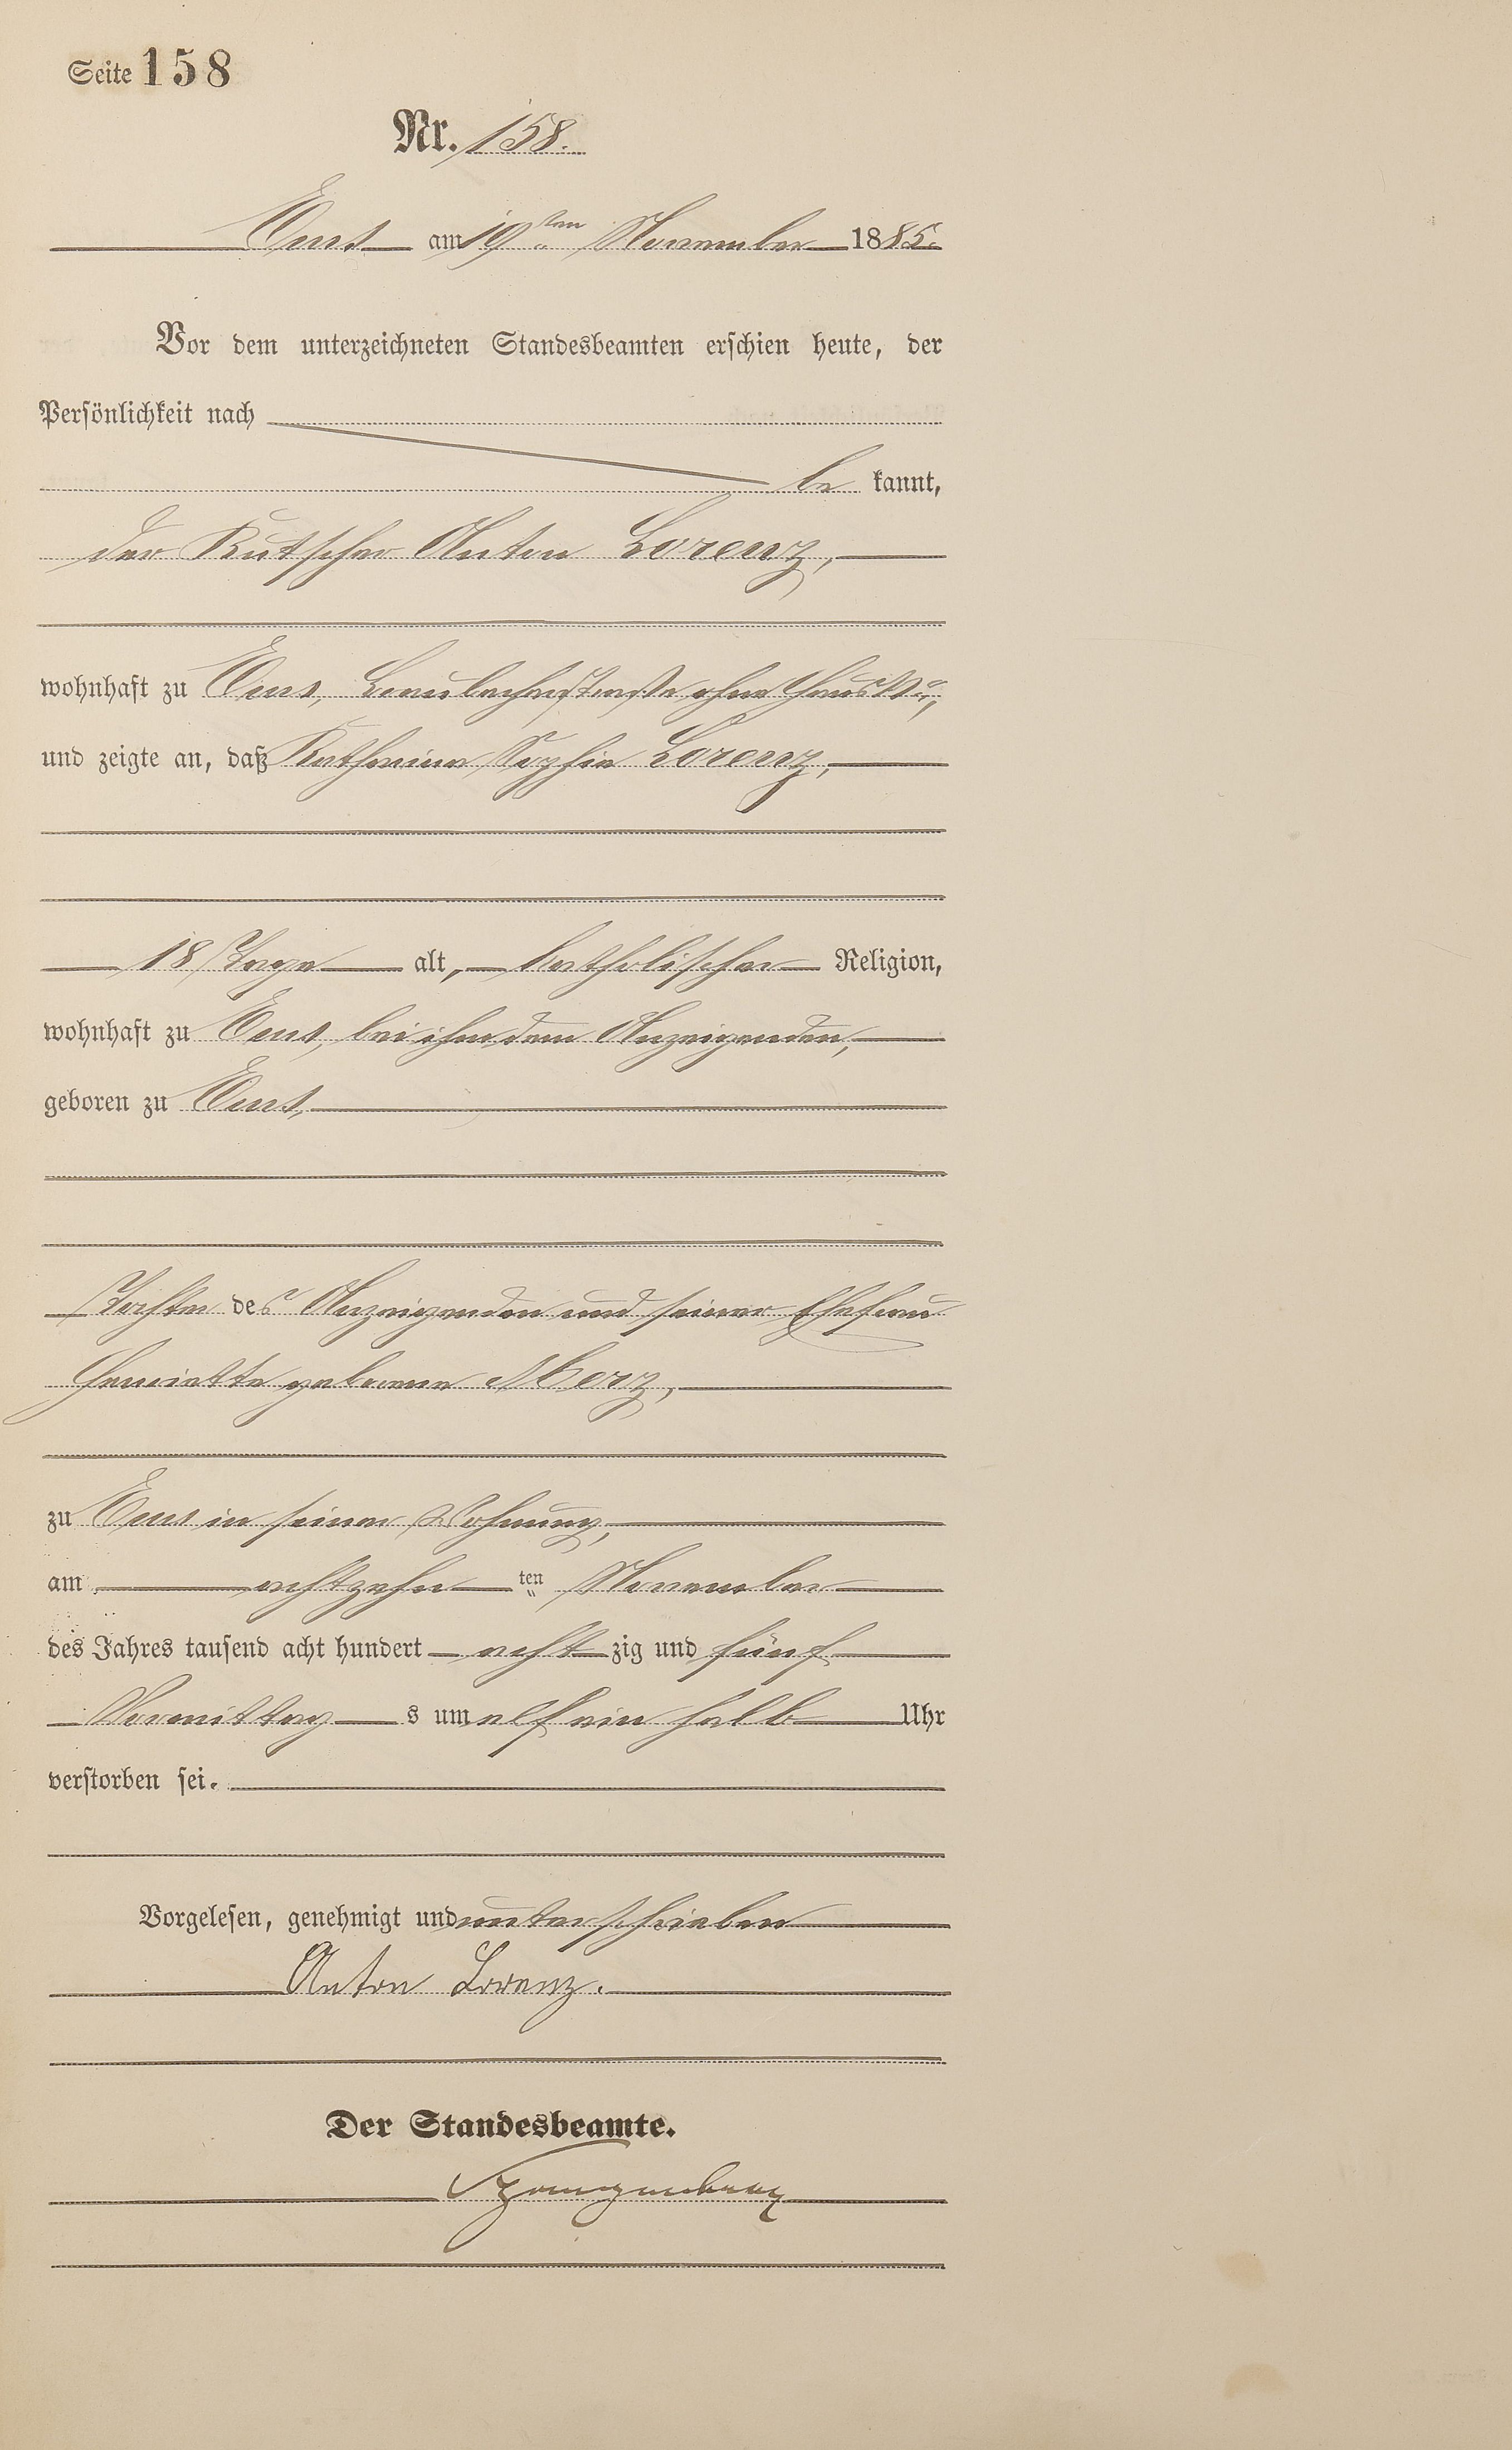 Seite 158
Nr. 158.
Ems am 19ten November 1885.
Vor dem unterzeichneten Standesbeamten erschien heute, der
Persönlichkeit nach
be kannt,
der Kutscher Anton Lorenz,
wohnhaft zu Ems, ohne Haus No,
und zeigte an, daß Katharina Sophia Lorenz,
18 Tage alt, katholischer Religion,
wohnhaft zu Ems, bei ihm dem Anzeigenden,
geboren zu Ems,
Tochter des Anzeigenden und seiner Ehefrau
Henriette geborene Merz,
zu Ems in seiner Wohnung,
am achtzehn ten November
des Jahres tausend acht hundert acht zig und fünf
Vormittag s um elf ein halb Uhr
verstorben sei.
Vorgelesen, genehmigt und unterschrieben
Anton Lorenz.
Der Standesbeamte.